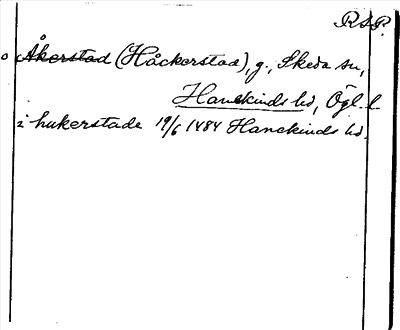 RSP.
o Åkerstad (Håckerstad), g., Skeda sn,
Hanekinds hd, Ögl. l
i hukerstade 19/6 1484 Hanekinds hd.